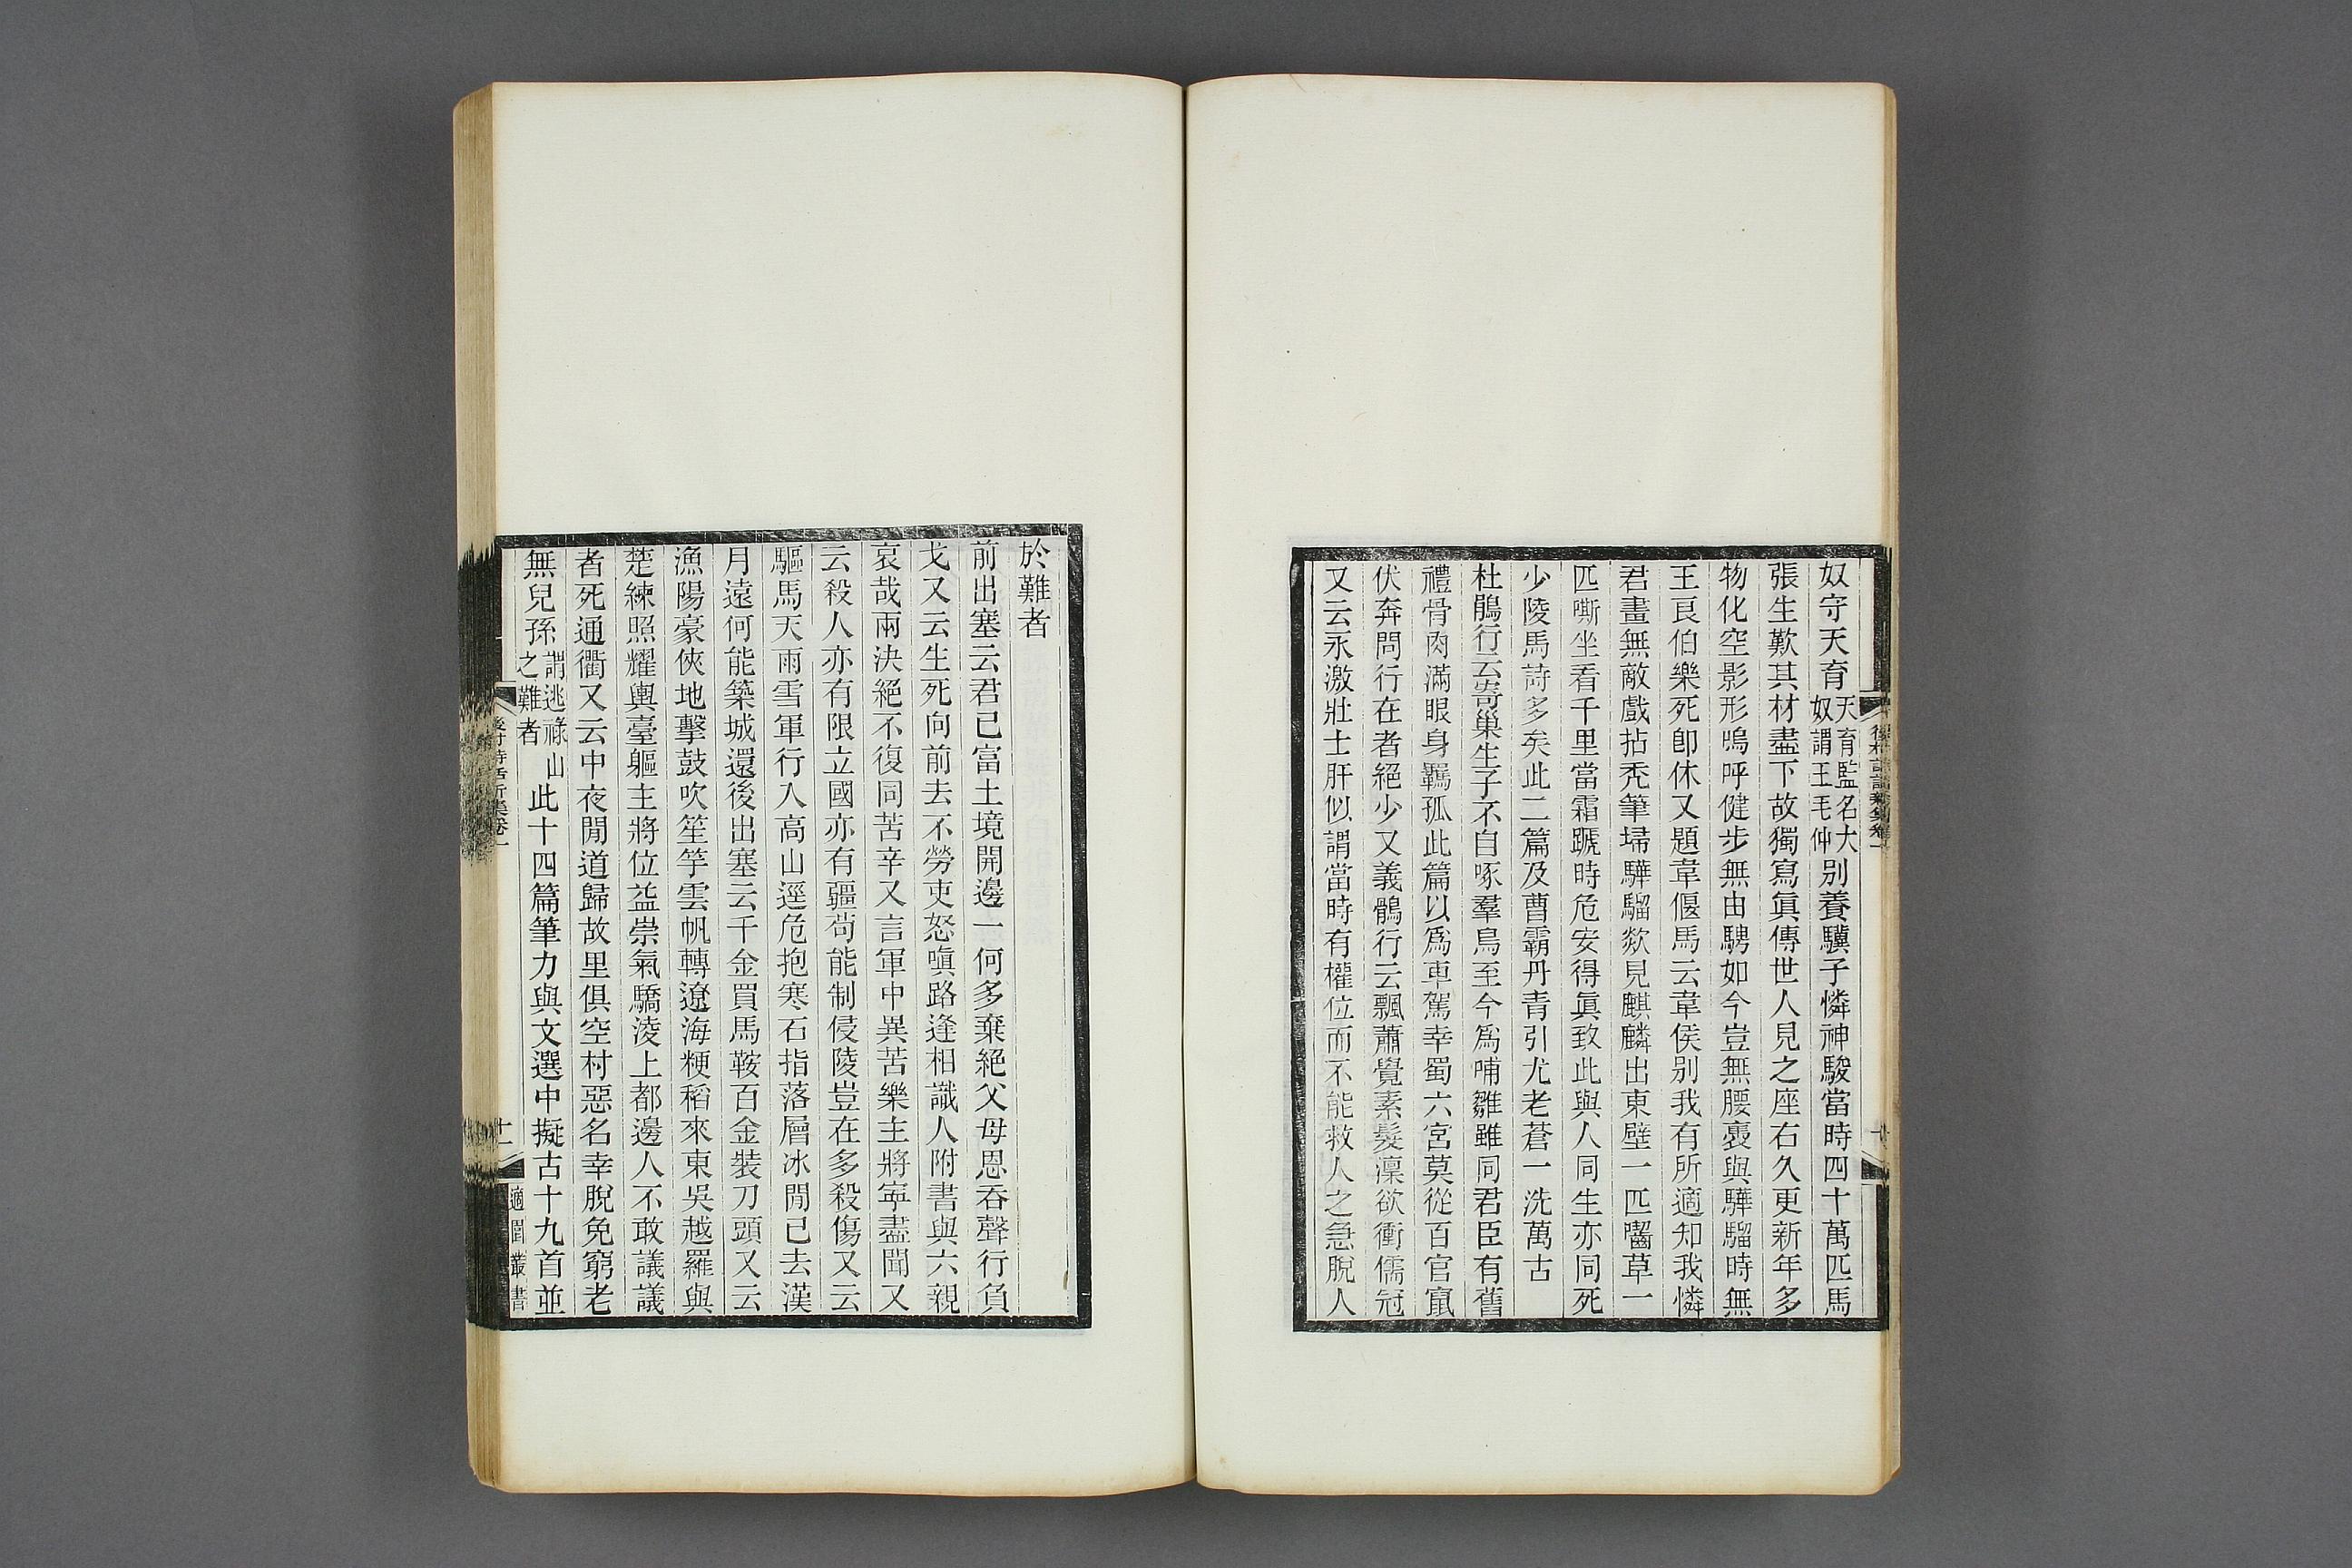 奴守天育天育監名大奴謂王毛仲別養驥子憐神駿當時四十萬匹馬
張生歎其材盡下故獨寫眞傳世人見之座右久更新年多
物化空影形嗚呼健步無由騁如今豈無腰褭與驊騮時無
王良伯樂死卽休又題韋偃馬云韋侯別我有所適知我憐
君畫無敵戲拈禿筆埽驊騮欻見麒麟出東壁一匹齧草一
匹嘶坐看千里當霜蹏時危安得眞致此與人同生亦同死
少陵馬詩多矣此二篇及曹霸丹青引尤老蒼一洗萬古
杜鵑行云寄巢生子不自啄羣鳥至今爲哺雛雖同君臣有舊
禮骨肉滿眼身羈孤此篇以爲車駕幸蜀六宮莫從百官竄
伏奔問行在者絕少又義鶻行云飄蕭覺素髮凜欲衝儒冠
又云永激壯士肝似謂當時有權位而不能救人之急脫人
後村詩話新集卷一
於難者
前出塞云君已富土境開邊一何多棄絕父母恩吞聲行負
戈又云生死向前去不勞吏怒嗔路逢相識人附書與六親
哀哉兩決絕不復同苦辛又言軍中異苦樂主將寧盡聞又
云殺人亦有限立國亦有疆苟能制侵陵豈在多殺傷又云
驅馬天雨雪軍行入高山逕危抱寒石指落層冰閒已去漢
月遠何能築城還後出塞云千金買馬鞍百金裝刀頭又云
漁陽豪俠地擊鼓吹笙竽雲帆轉遼海粳稻來東吳越羅與
楚練照耀輿臺軀主將位益崇氣驕淩上都邊人不敢議議
者死通衢又云中夜閒道歸故里俱空村惡名幸脫免窮老
無兒孫謂逃祿山之難者此十四篇筆力與文選中擬古十九首並
後村詩話新集卷一
十一
適園叢書